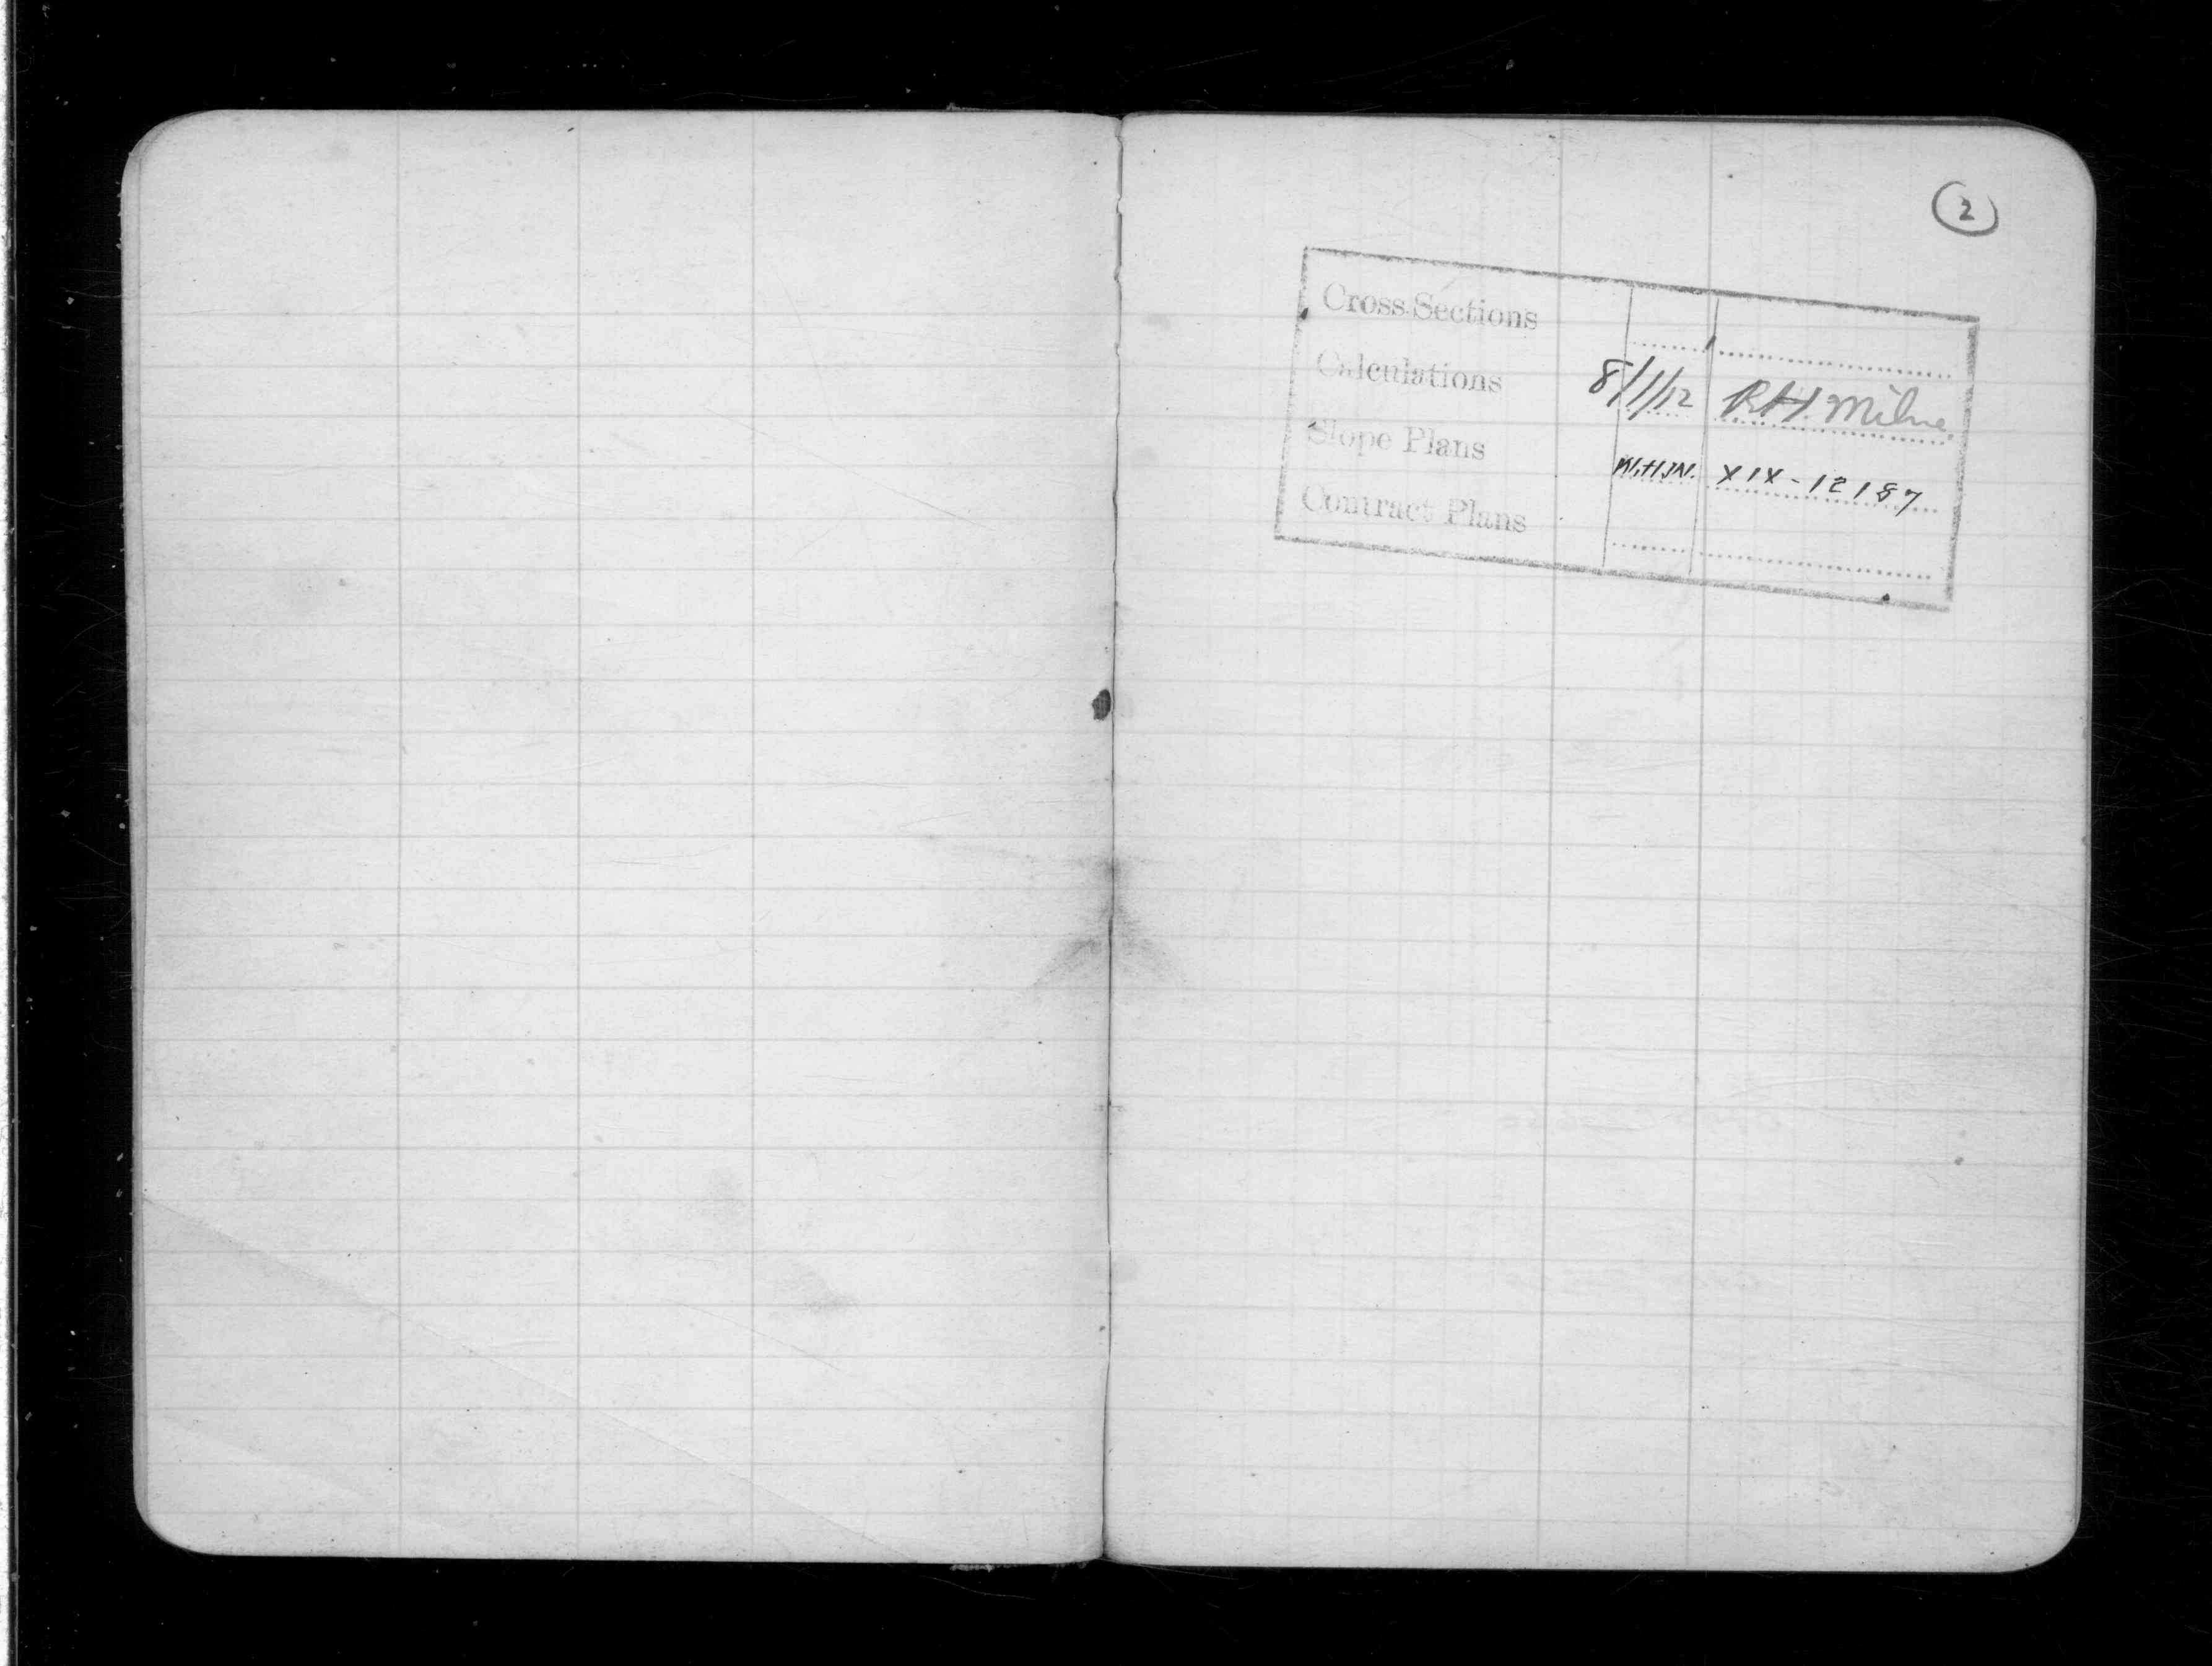 2
Cross Sections
Calculations 8/1/12 R.H. Milne
Slope Plans XIX-12187
Contract Plans